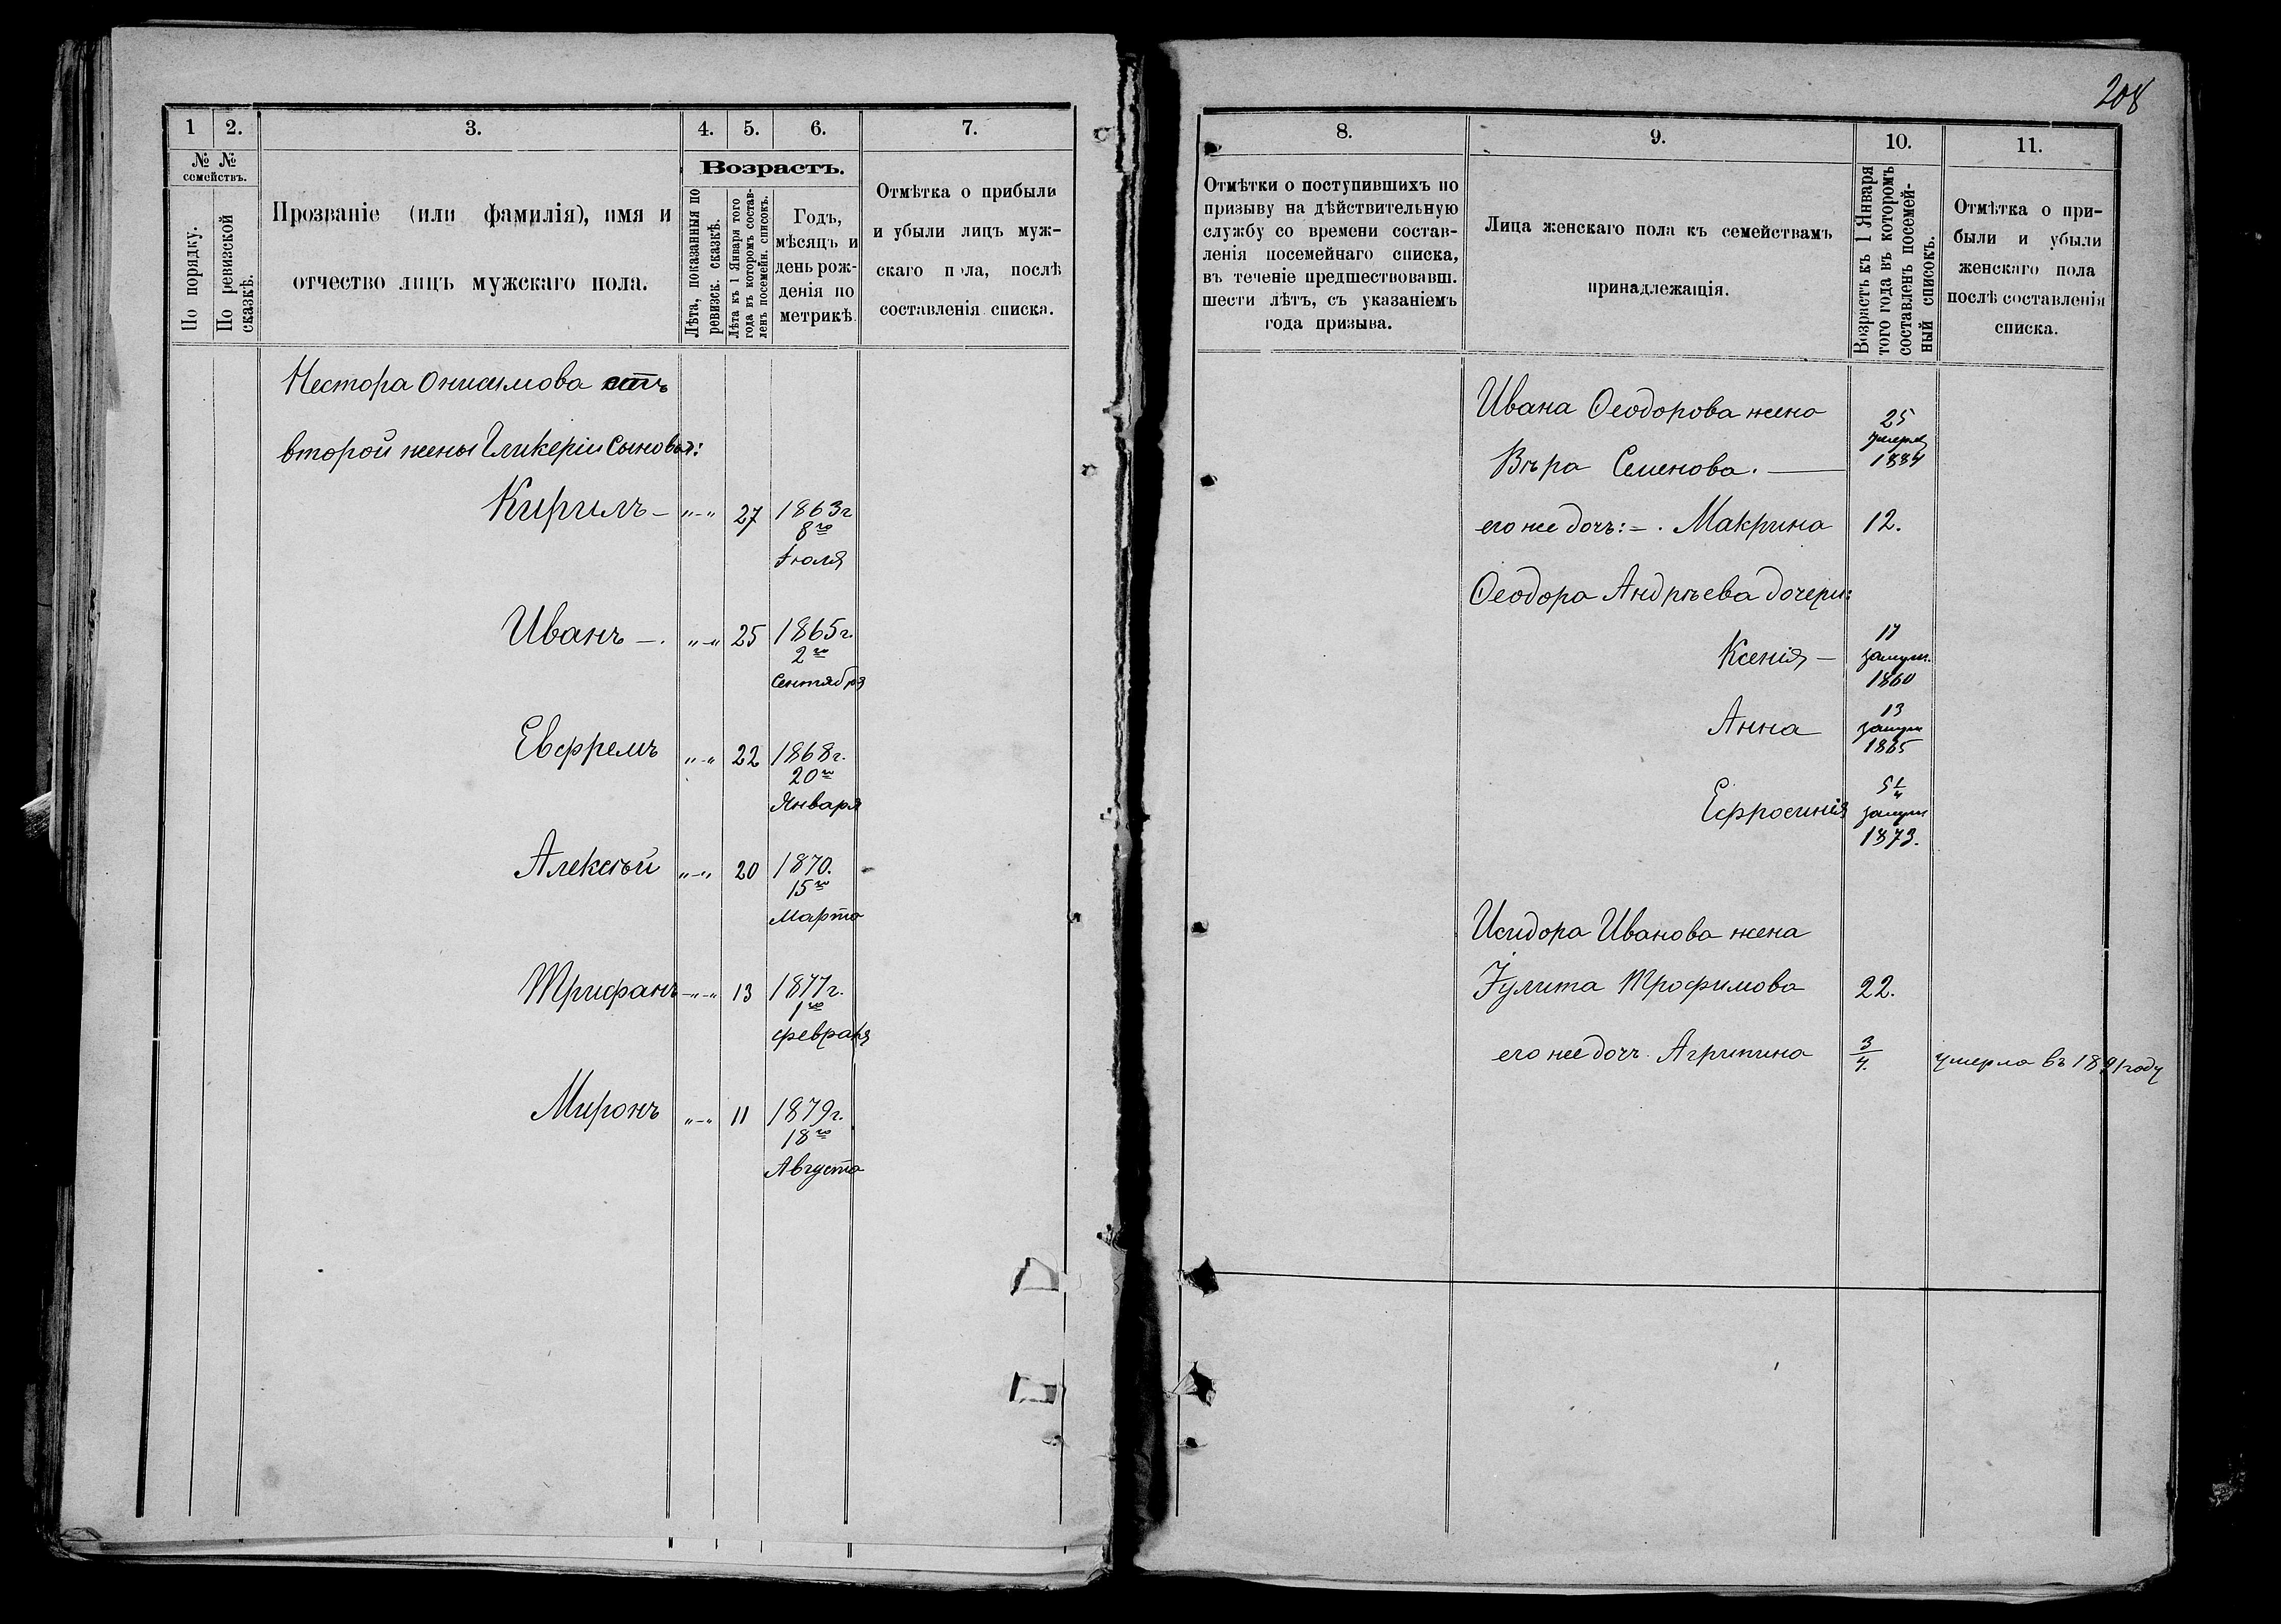 208
1 2. 3. 4. 5. 6. 7.
№ №
семействъ.
По порядку.
По ревизской
сказкѣ.
Прозваніе (или фамилія), имя и
отчество лицъ мужскаго пола.
Возрастъ.
Лѣта, показанныя по
ревизск. сказкѣ.
Лѣта къ 1 Января того
года въ которомъ состав-
ленъ посемейн. списокъ.
Годъ,
мѣсяцъ и
день рож-
денія по
метрикѣ
Отмѣтка о прибыли
и убыли лицъ муж-
скаго пола, послѣ
составленія списка.
Нестора Онисимова отъ
второй жены Гликеріи сыновья:
Кирилъ – „–„ 27 1863г
8го
Іюля
Иванъ –. „–„ 25 1865г.
2го
Сентября
Евфремъ „–„ 22 1868г.
20го
Января
Алексѣй „–„ 20 1870.
15го
Марта
Трифанъ –„–„ 13 1877г.
1го
февраля
Миронъ „–„ 11 1879г.
18го
Августа
8. 9. 10. 11.
Отмѣтки о поступившихъ по
призыву на дѣйствительную
службу со времени состав-
ленія посемейнаго списка,
въ теченіе предшествовавш.
шести лѣтъ, съ указаніемъ
года призыва.
Лица женскаго пола къ семействамъ
принадлежащія.
Возрастъ къ 1 Января
того года въ которомъ
составленъ посемей-
ный списокъ.
Отмѣтка о при-
были и убыли
женскаго пола
послѣ составленія
списка.
Ивана Ѳеодорова жена
Вѣра Семенова. —
25
умерла
1884
его же дочь: –. Макрина 12.
Ѳеодора Андрѣева дочери:
Ксенія –
17
замуж.
1860
Анна
13
замуж
1865
Ефросинія
5 1/4
замуж
1873.
Исидора Иванова жена
Іулита Трофимова 22.
его же доч. Агрипина 3/4. умерла въ 1891 году